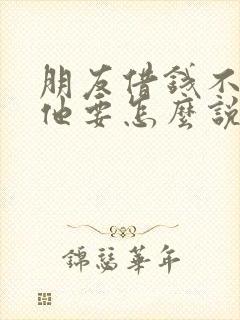 朋友借錢不
他要怎麼說
錦瑟華年